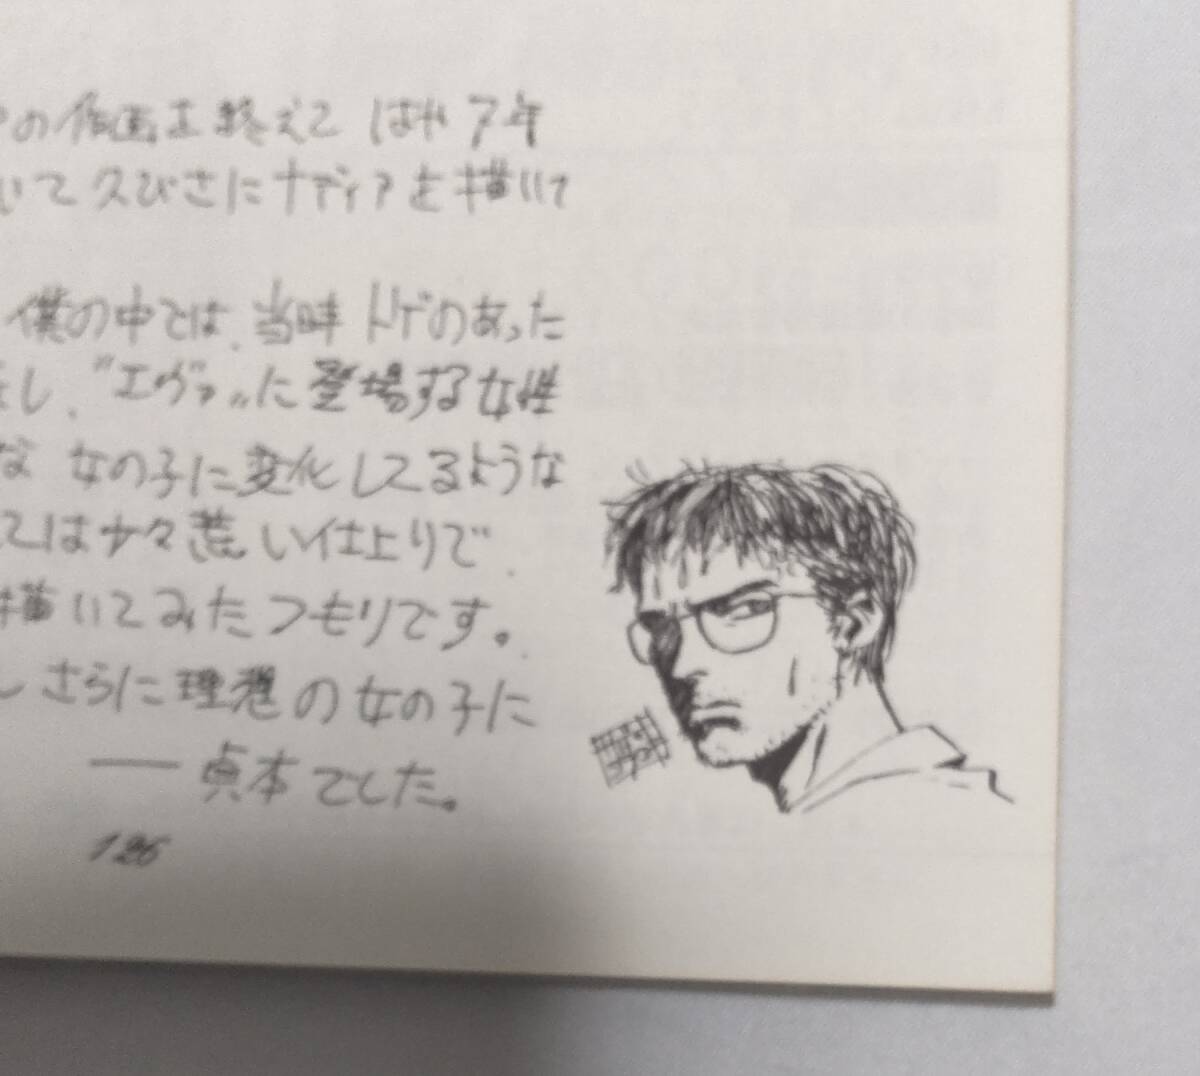 の作画を終えて はや7年
いて久びさにナディアを描いて
僕の中では、当時トゲのあった
し、〝エヴァ〟に登場する女性
な 女の子に変化してるような
ては少々荒い仕上りで、
描いてみたつもりです。
し さらに理想の女の子に
── 貞本でした。
126